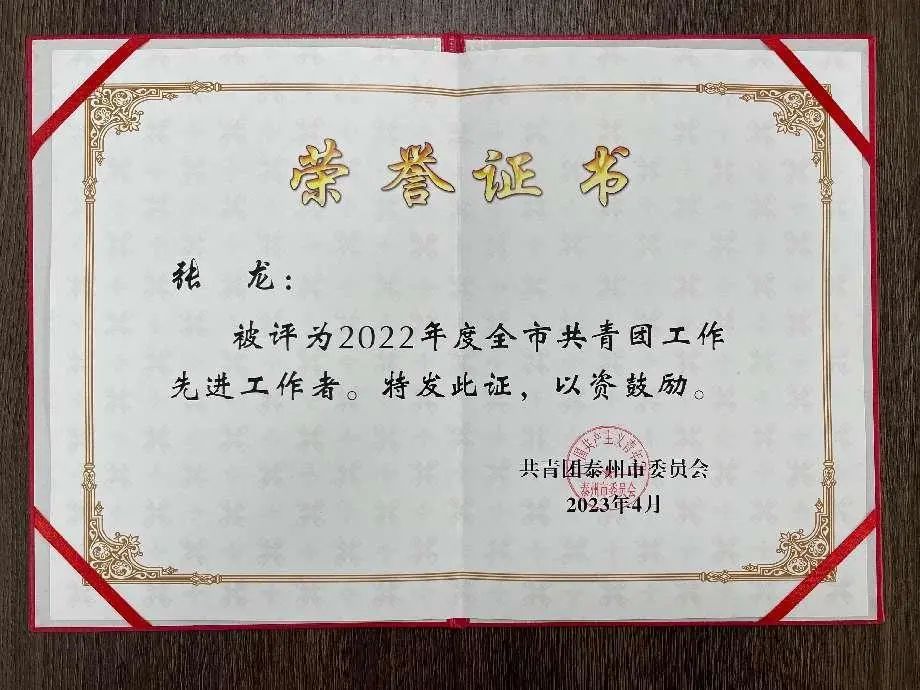 荣誉证书
张 龙：
被评为2022年度全市共青团工作
先进工作者。特发此证，以资鼓励。
共青团泰州市委员会
2023年4月
国共产主义青年
泰州市委员会